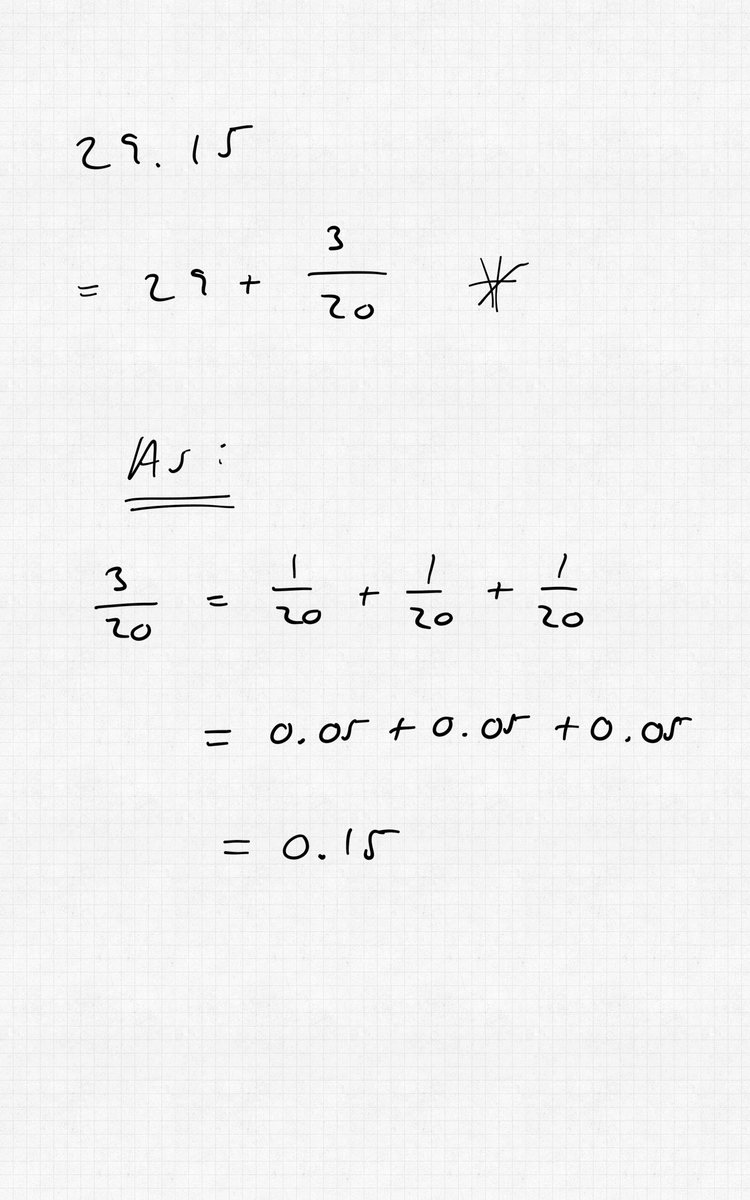 29.15
= 29 + 3/20 *
As :
3/20 = 1/20 + 1/20 + 1/20
= 0.05 + 0.05 + 0.05
= 0.15